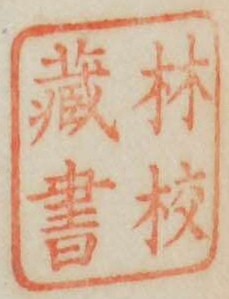 林校
藏書